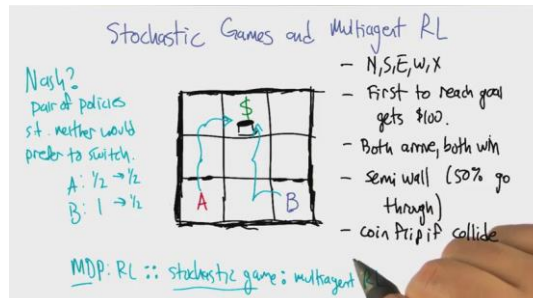 Stochastic Games and Multiagent RL
Nash?
pair of policies
s.t. neither would
prefer to switch.
A: 1/2 → 1/2
B: 1 → 1/2
$
A
B
- N,S,E,W,X
- First to reach goal
gets $100.
- Both arrive, both win
- Semi wall (50% go
through)
- coin flip if collide
MDP: RL :: stochastic game: multiagent